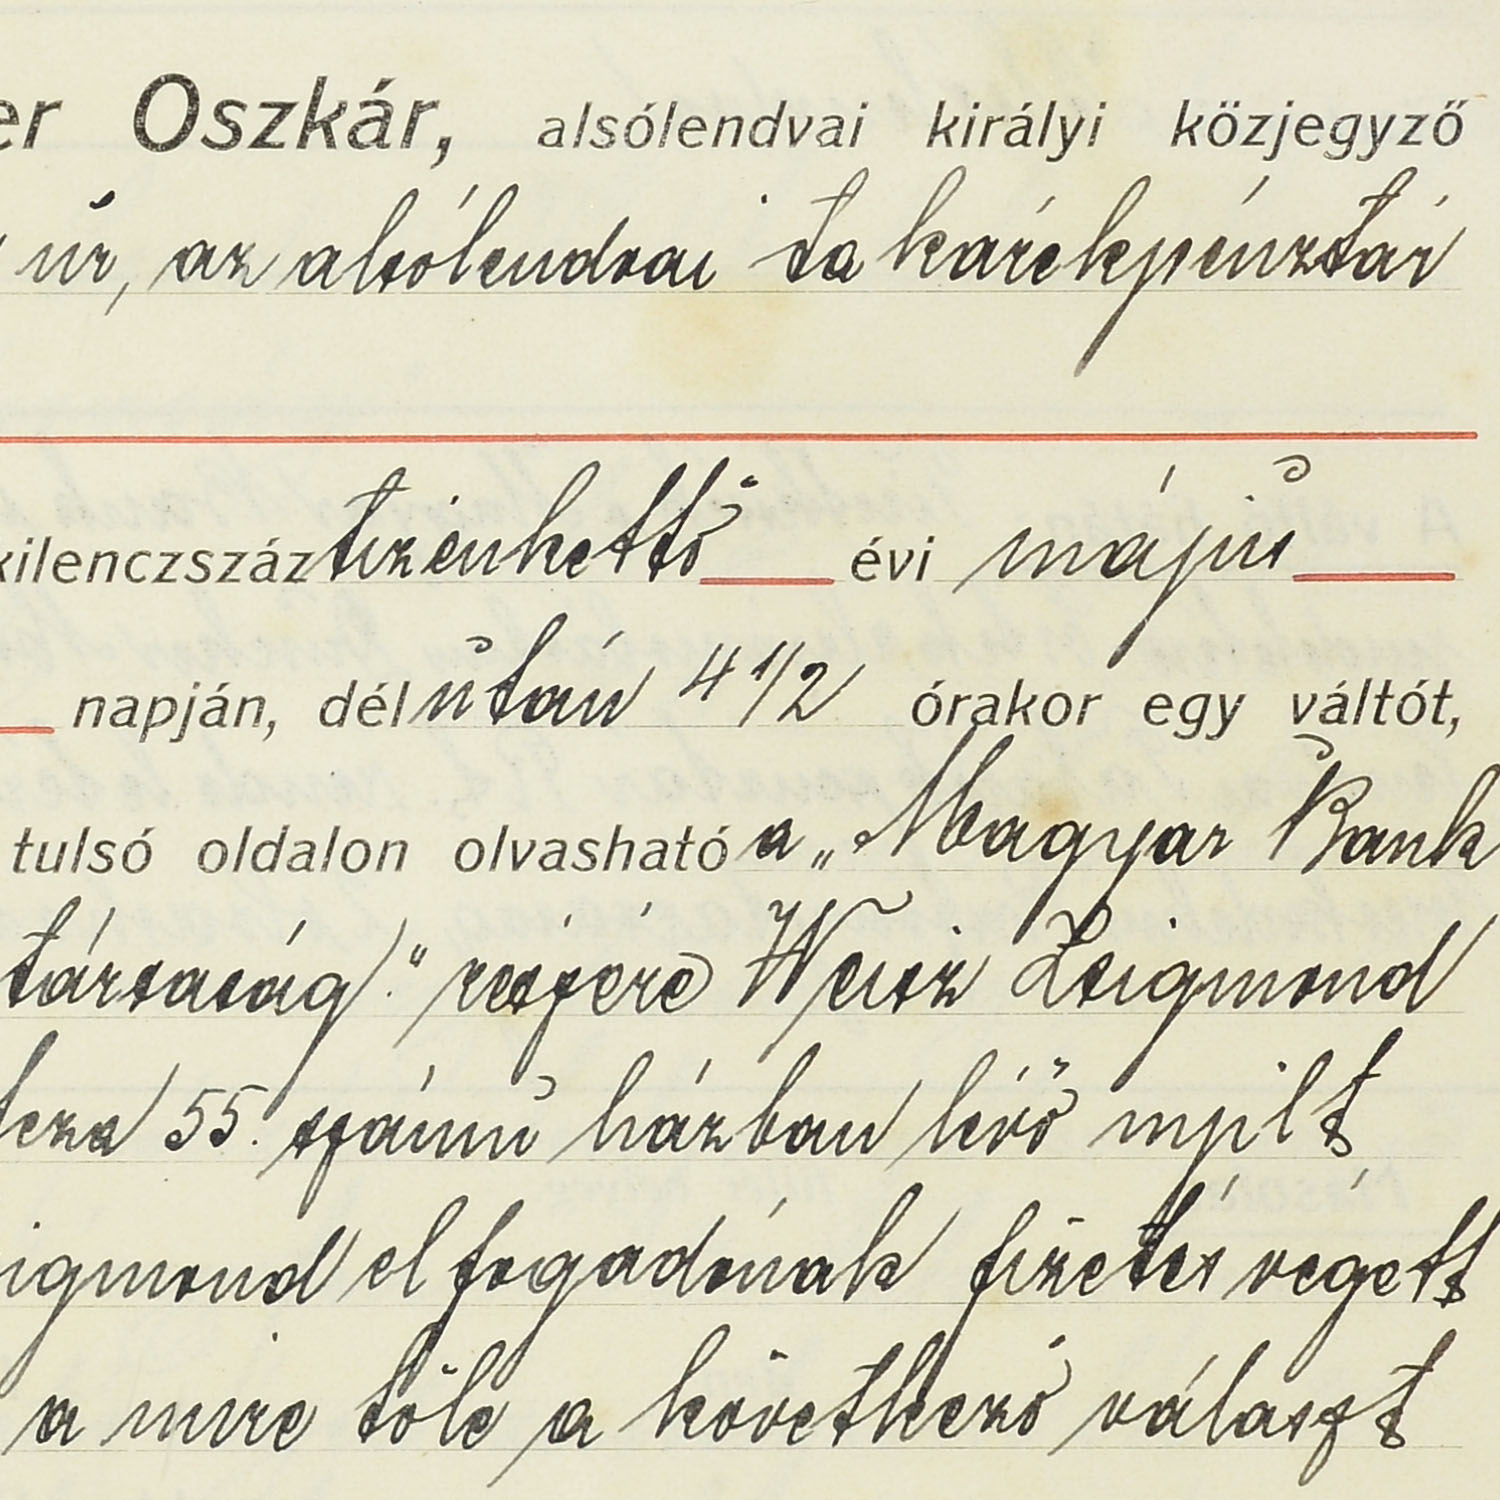 er Oszkár, alsólendvai királyi közjegyző
úr, az alsólendvai takarékpénztár
kilenczszáztizenkettő évi május
napján, délután 4 1/2 órakor egy váltót,
tulsó oldalon olvasható a „Magyar Bank
társaság" részére Weisz Zsigmond
55. számú házban lévő nyilt
igmond elfogadónak fizetés végett
a mire tőle a következő választ